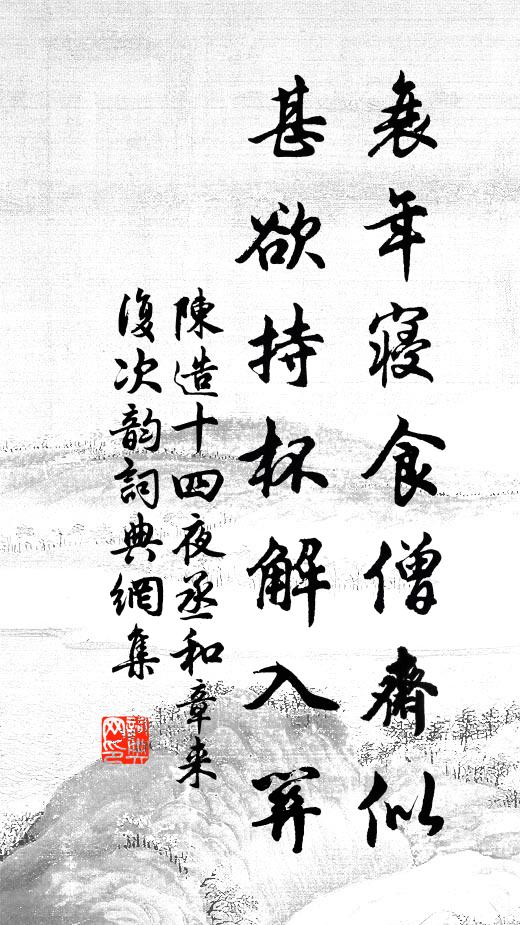 衰年寝食僧齊似
甚欲持杯解入羿
陳造十四夜丞和章来
復次韵詞典網集